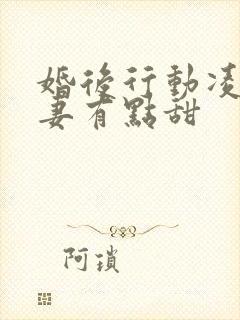 婚後行動凌
妻有點甜
阿瑣